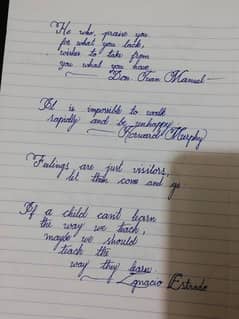 He who, praise you
for what you lack,
wishes to take from
you what you have
Don Juan Manuel
It is impossible to walk
rapidly and be unhappy.
Howard Murphy
Feelings are just visitors,
let them come and go
If a child cant learn
the way we teach,
maybe we should
teach the
way they learn.
Ignacio Estrada